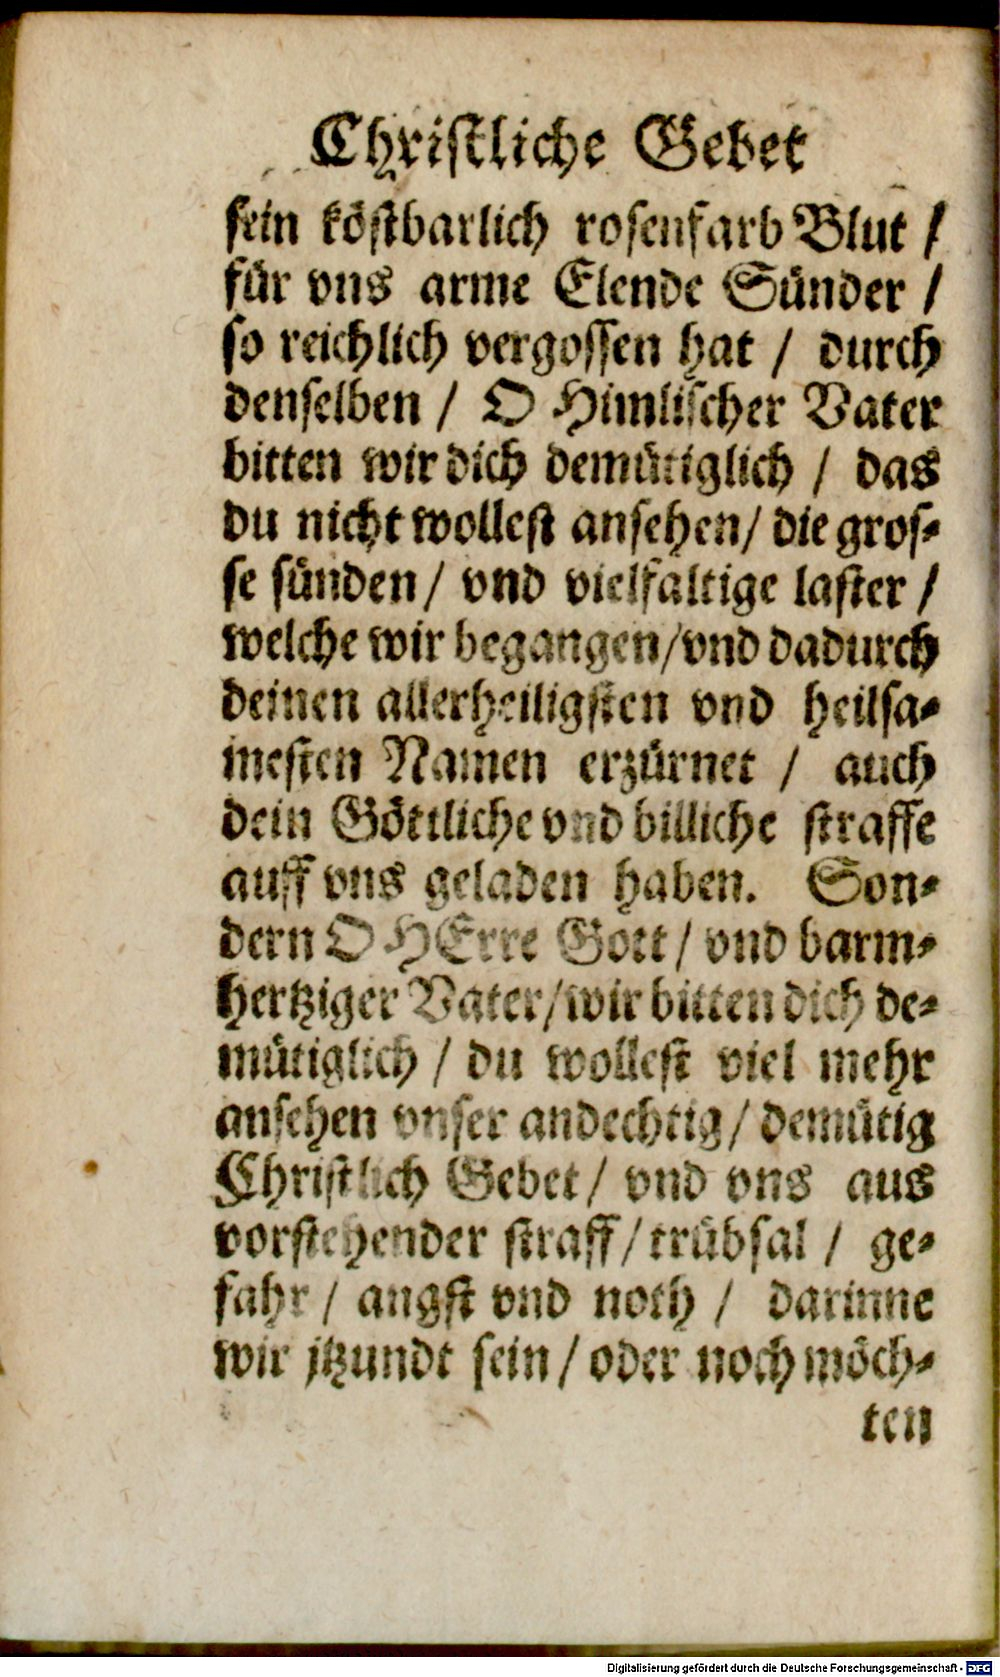 Christliche Gebet
sein köstbarlich rosenfarb Blut /
für vns arme Elende Sünder /
so reichlich vergossen hat / durch
denselben / O Himlischer Vater
bitten wir dich demütiglich / das
du nicht wollest ansehen / die gros-
se sünden / vnd vielfaltige laster /
welche wir begangen / vnd dadurch
deinen allerheiligsten vnd heilsa-
mesten Namen erzürnet / auch
dein Göttliche vnd billiche straffe
auff vns geladen haben. Son-
dern O HErre Gott / vnd barm-
hertziger Vater / wir bitten dich de-
mütiglich / du wollest viel mehr
ansehen vnser andechtig / demütig
Christlich Gebet / vnd vns aus
vorstehender straff / trübsal / ge-
fahr / angst vnd noth / darinne
wir jtzundt sein / oder noch möch-
ten
Digitalisierung gefördert durch die Deutsche Forschungsgemeinschaft - DFG